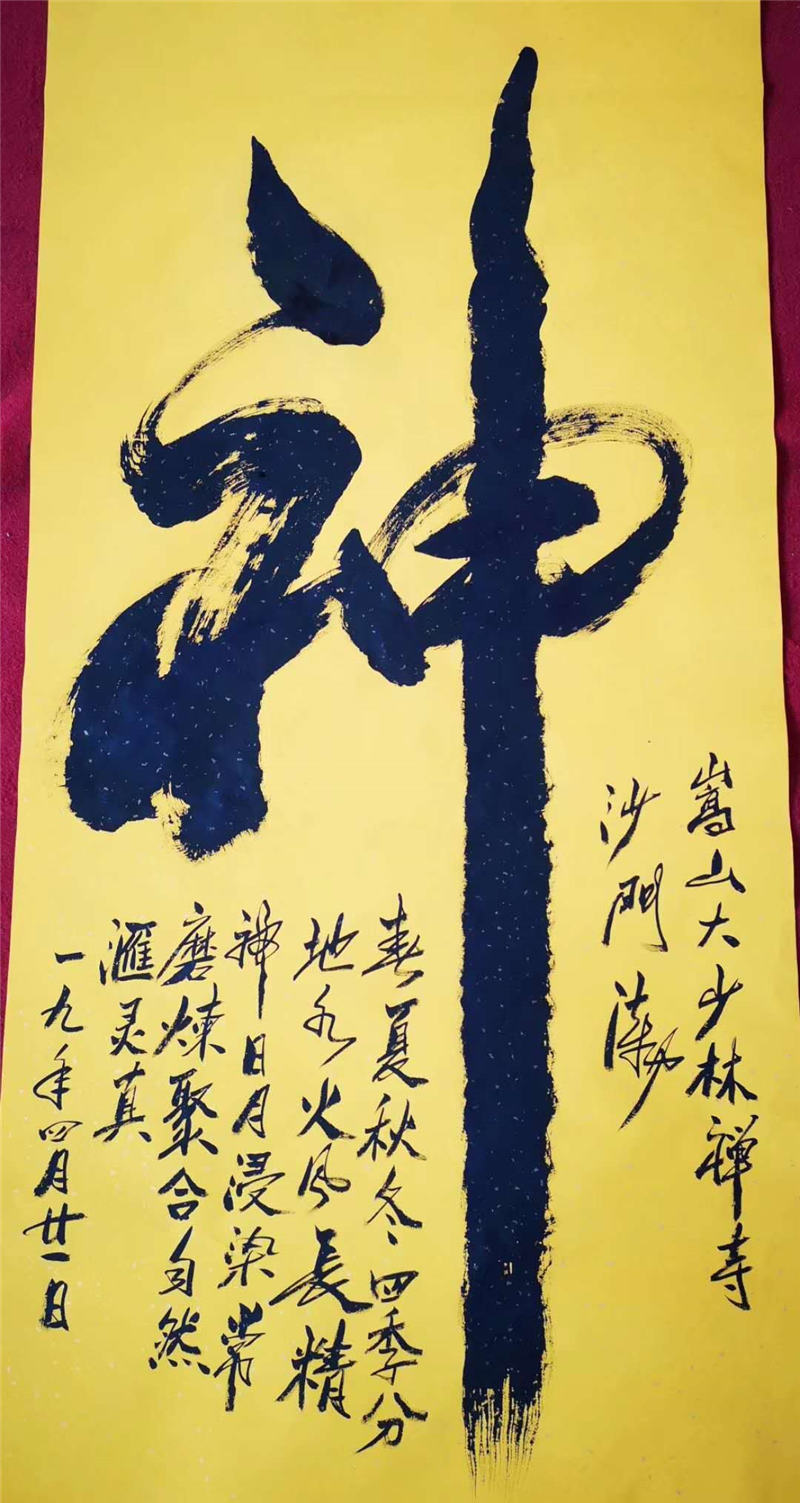 神
嵩山大少林禅寺
沙門
春夏秋冬四季分
地水火风長精
神日月浸染常
磨煉聚合自然
滙灵真
一九年四月廿一日